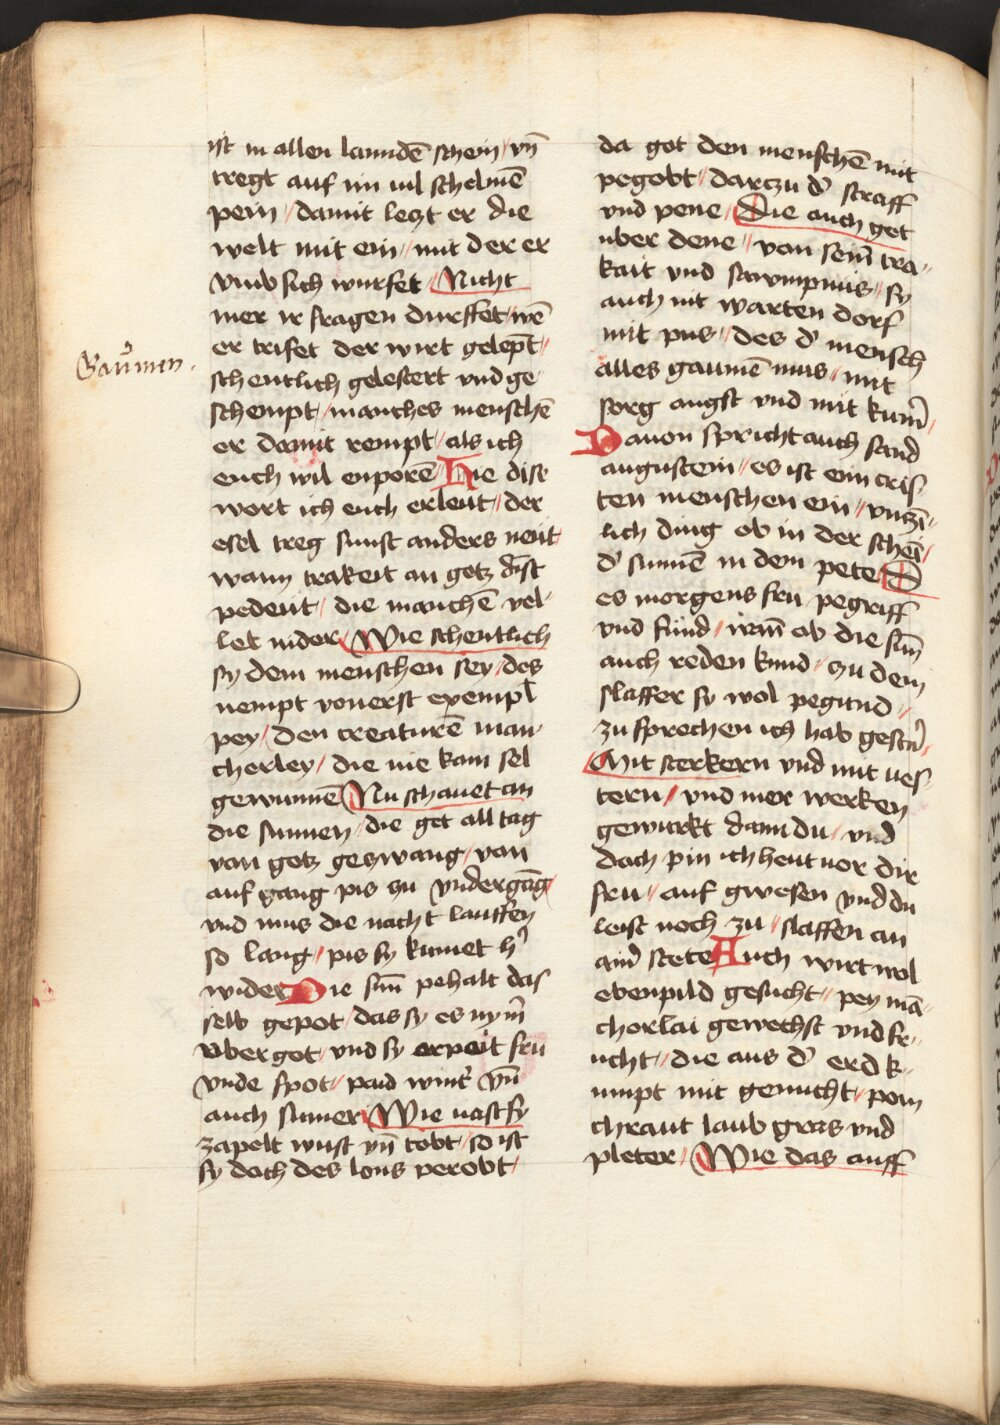 ist in allen lanndē schein / vn̄
tregt auf im uil schelmē
pein / damit leczt er die
welt mit ein / mit der er
vmb sich wurfet / Nicht
mer ir fragen durffet / wē
er trifet der wirt gelept /
schentlich gelestert vnd ge
schempt / manches menschē
er damit rempt / als ich
euch wil enporē Die dise
wort ich euch erleut / der
esel treg sunst anders neut
wann trakeit an gotz dīst
pedeut / die manchē vel
let nider / Wie schentlich
sy dem menschen sey / des
nempt vonerst exempl
pey / den creaturē man
cherley / die nie kam sel
gewunnē Nu schauet an
die sunnen / die get all tag
von gotz geswang / von
auf gang pis zu vndergāg
vnd mus die nacht lauffen
so lang / pis sy kumet h'
wider Die sun̄ pehalt das
selb gepot / das sy es nym̄
vber got / vnd sy arpait fru
vnde spot / paid wint' vn̄
auch sumer / Wie uast sy
zapelt wust vn̄ tobt / so ist
sy doch des lons perobt /
Gaūmen.
da got den menschē mit
pegobt / darczu d' straff
vnd pene / Die auch got
uber dene / von seim̄ tra
kait vnd sawmpnus / sy
auch nit warten dorf
mit pus / des d' mensch
alles gaumē mus / mit
sorg angst vnd mit kum̄
Dauon spricht auch sand
augustein / es ist eim cris
ten menschen ein / vnzī
lich ding ob in der schei
d' sunnē in dem pete / D
es morgens fru pegriff
vnd fund / wan̄ ob die sun̄
auch reden kund / zu dem
slaffer sy wol pegund /
zu sprechen ich hab gester'
Mit sterkern vnd mit ues
tern / vnd mer werken
gewurkt dann du / vnd
doch pin ich heut uor dir
fru / auf gwesen vnd du
leist noch zu / slaffen an
aim̄ stete Auch wirt wol
ebenpild gesucht / pey mā
chorlai gewechst vnd fr
ucht / die aus d' erd k
umpt mit genucht / pom
chraut laub gras vnd
pleter / Wie das auff